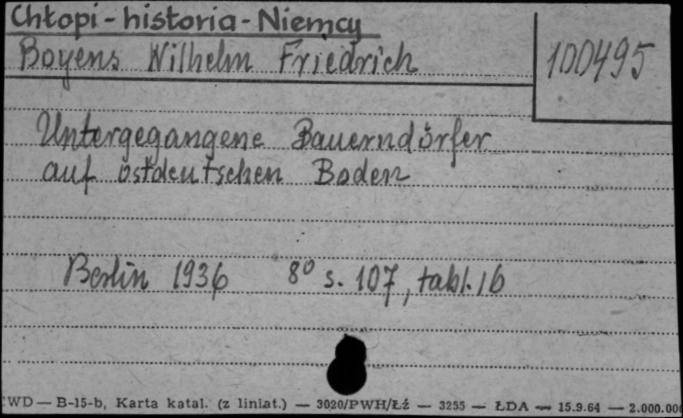 Chłopi - historia - Niemcy
Boyens Wilhelm Friedrich
100495
Untergegangene Bauerndörfer
auf ostdeutschen Boden
Berlin 1936 8° s. 107, tabl. 16
WD — B-15-b, Karta katal. (z liniat.) — 3020/PWH/Łź — 3255 — ŁDA — 15.9.64 — 2.000.00